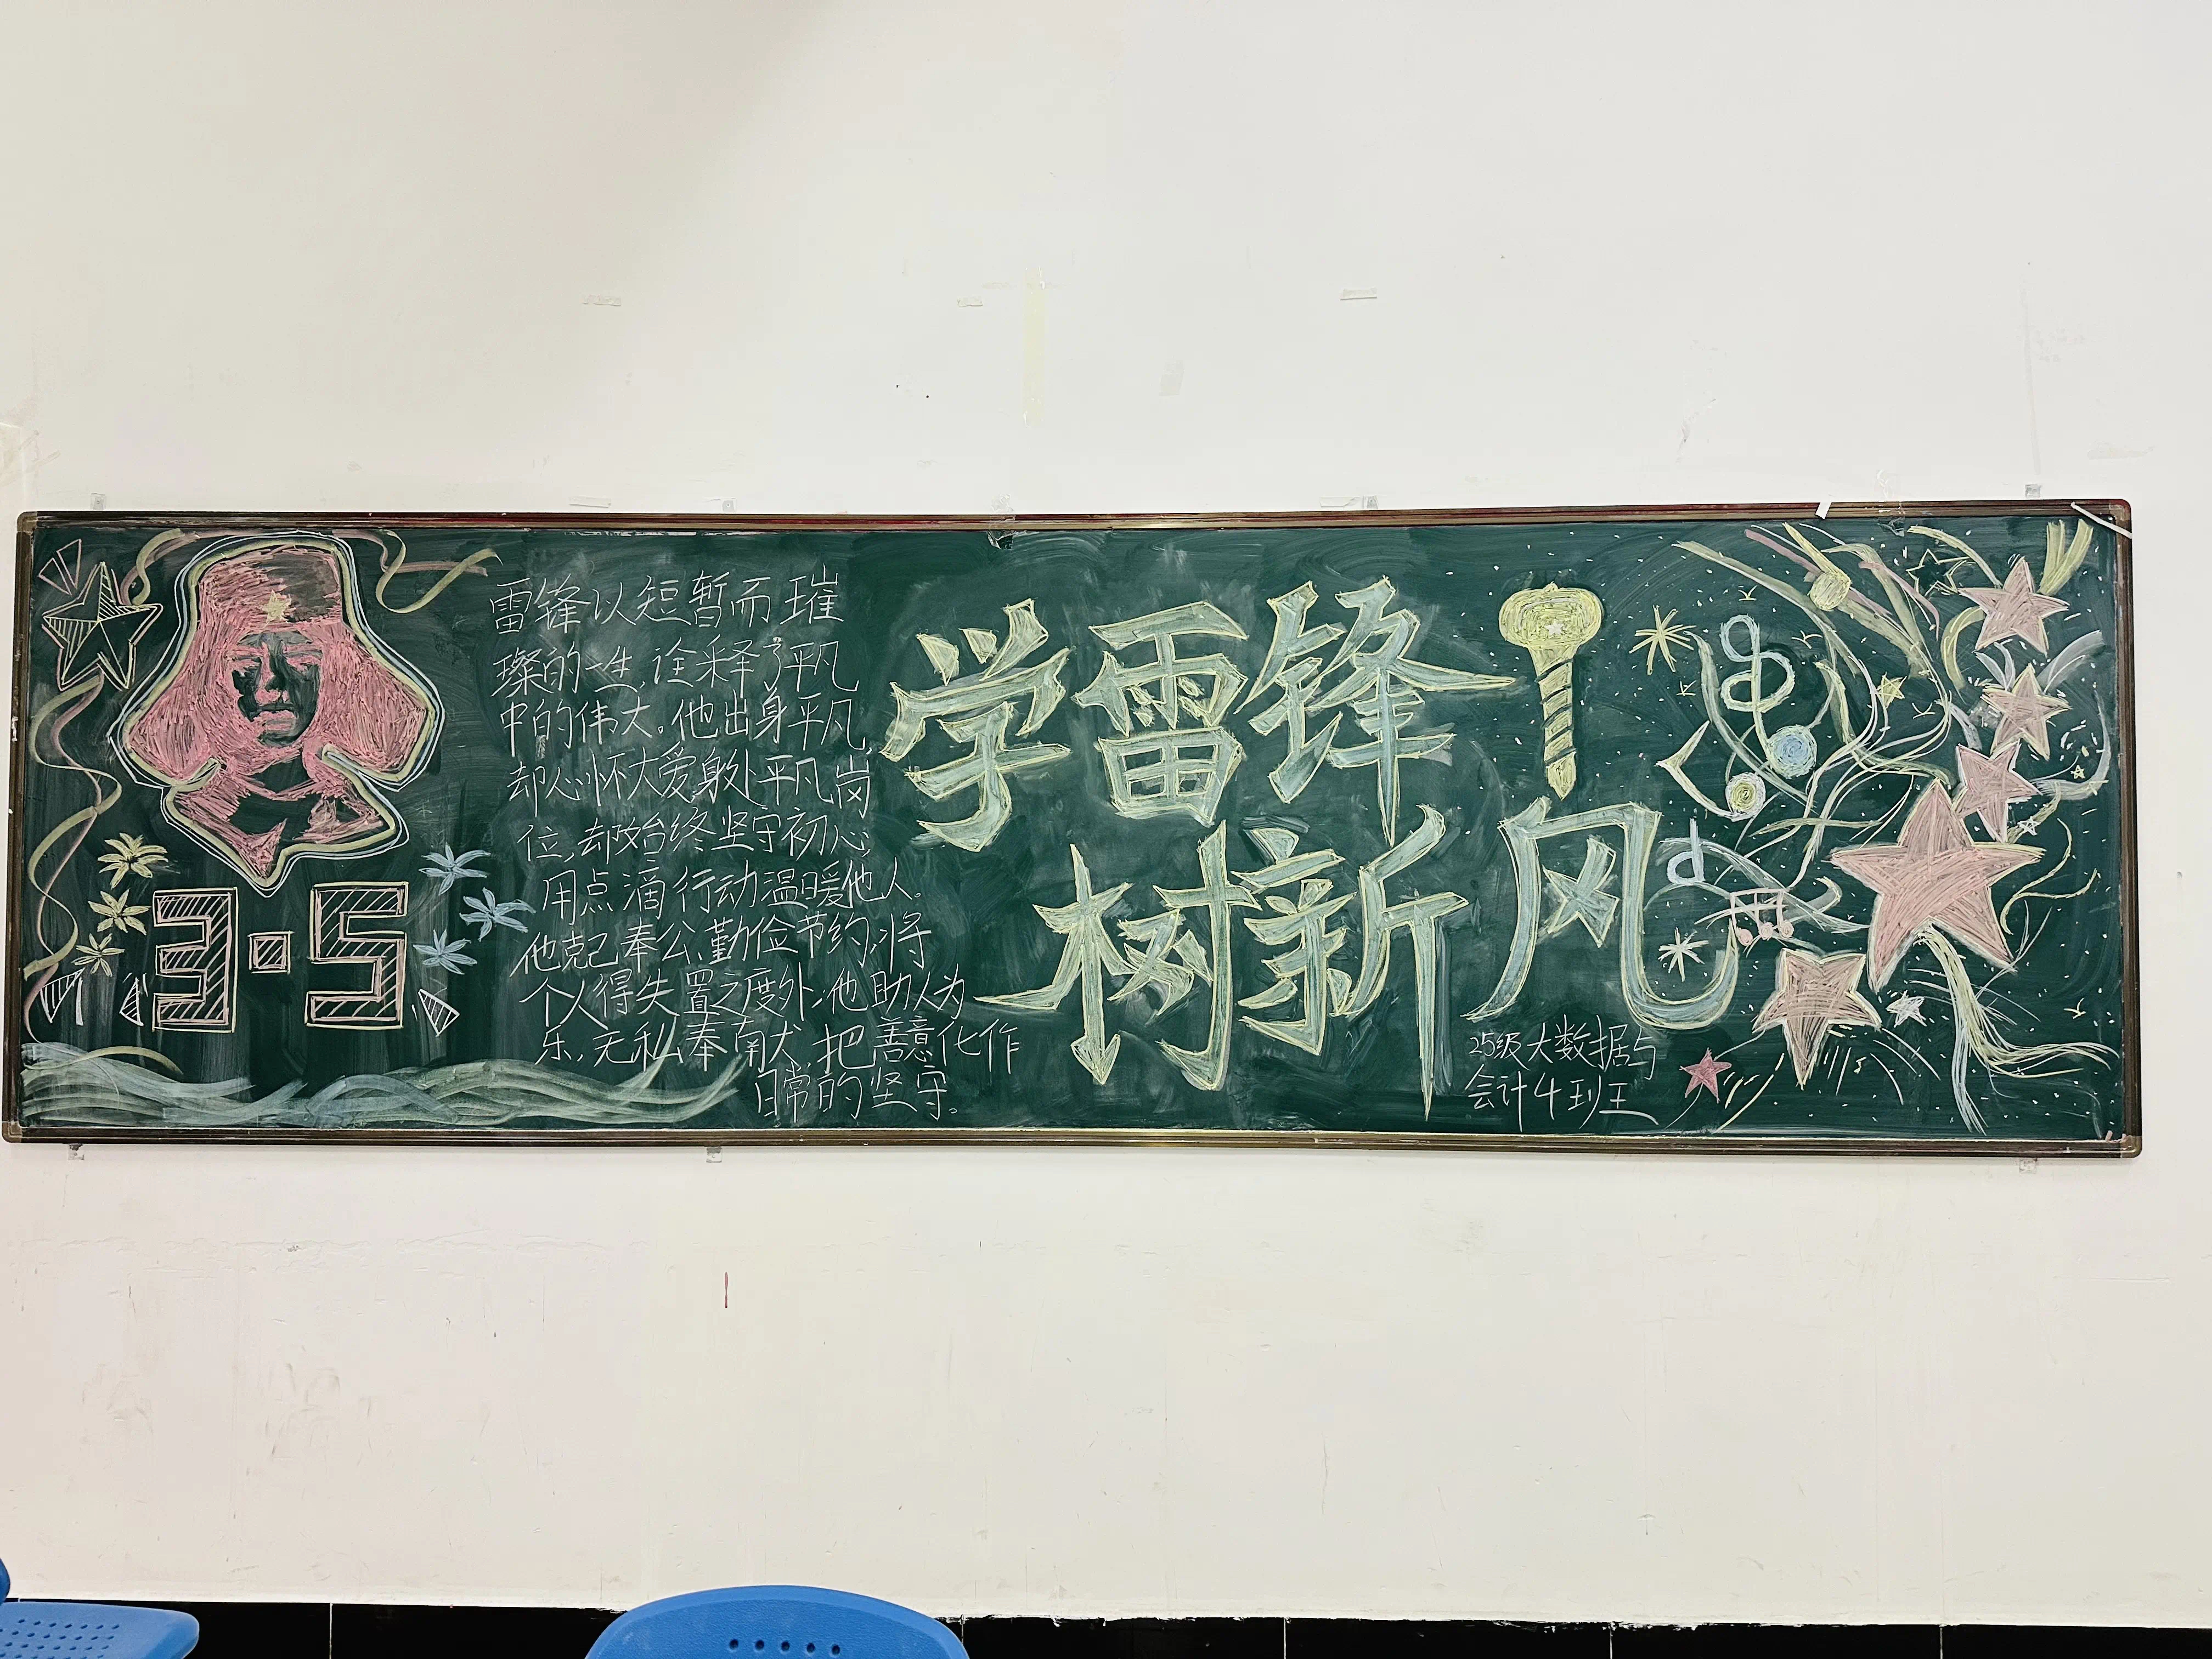 雷锋以短暂而璀
璨的一生,诠释了平凡
中的伟大。他出身平凡,
却心怀大爱,身处平凡岗
位,却始终坚守初心,
用点滴行动温暖他人。
他克己奉公、勤俭节约,将
个人得失置之度外;他助人为
乐,无私奉献,把善意化作
日常的坚守。
3·5
学雷锋
树新风
25级大数据与
会计4班王